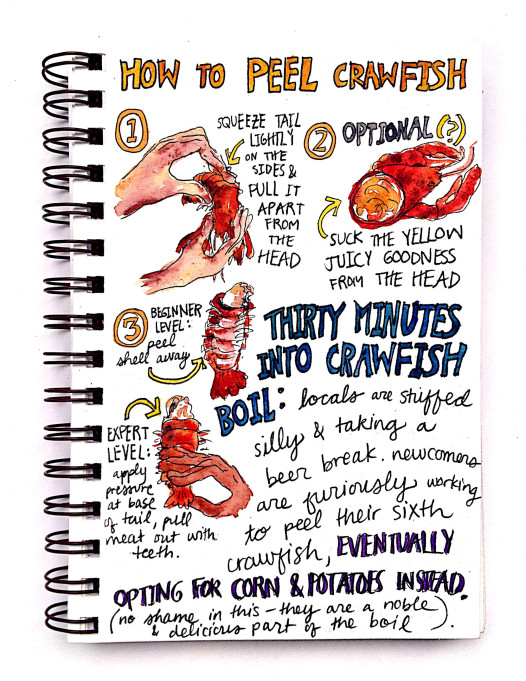 HOW TO PEEL CRAWFISH
1
SQUEEZE TAIL
LIGHTLY
ON THE
SIDES &
PULL IT
APART
FROM
THE
HEAD
2 OPTIONAL (?)
SUCK THE YELLOW
JUICY GOODNESS
FROM THE HEAD
3 BEGINNER
LEVEL:
peel
shell away
EXPERT
LEVEL:
apply
pressure
at base
of tail, pull
meat out with
teeth.
THIRTY MINUTES
INTO CRAWFISH
BOIL: locals are stuffed
silly & taking a
beer break. newcomers
are furiously working
to peel their sixth
crawfish, EVENTUALLY
OPTING FOR CORN & POTATOES INSTEAD.
(no shame in this - they are a noble
& delicious part of the boil).